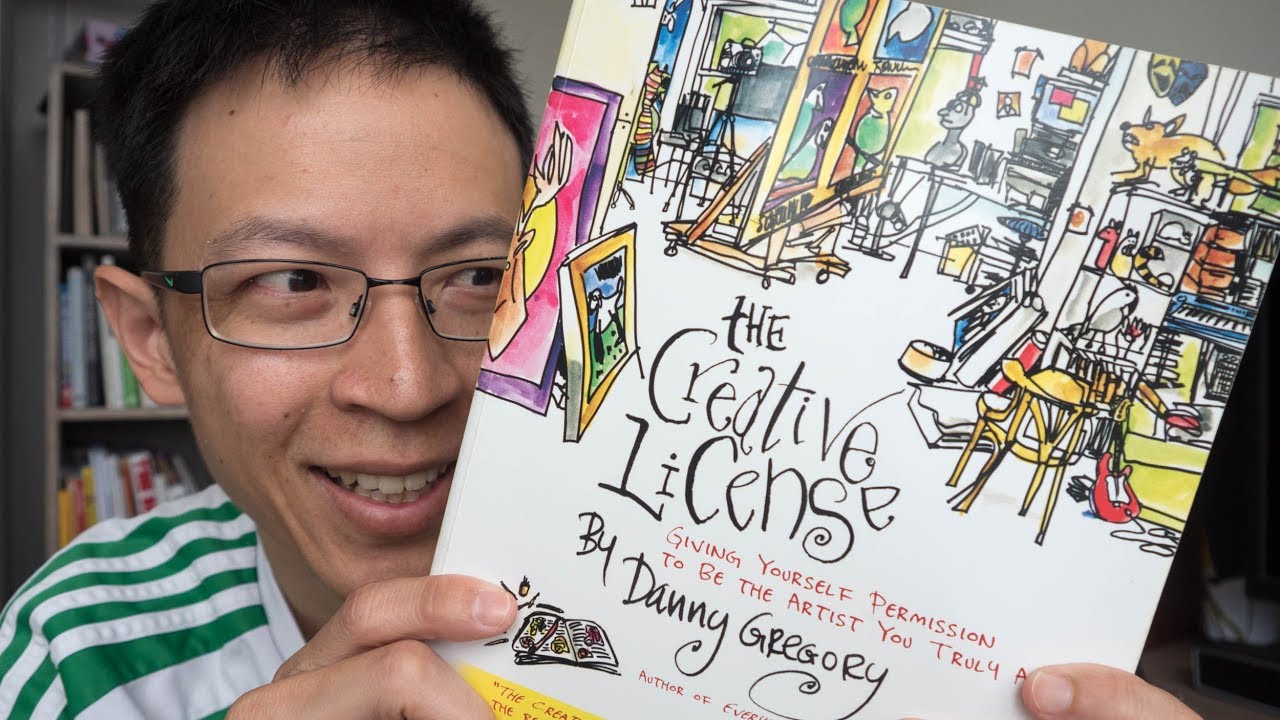 THE
Creative
License
By Danny Gregory
Giving Yourself Permission
to Be the Artist You Truly A
Author of Every
"The Creat
the Be